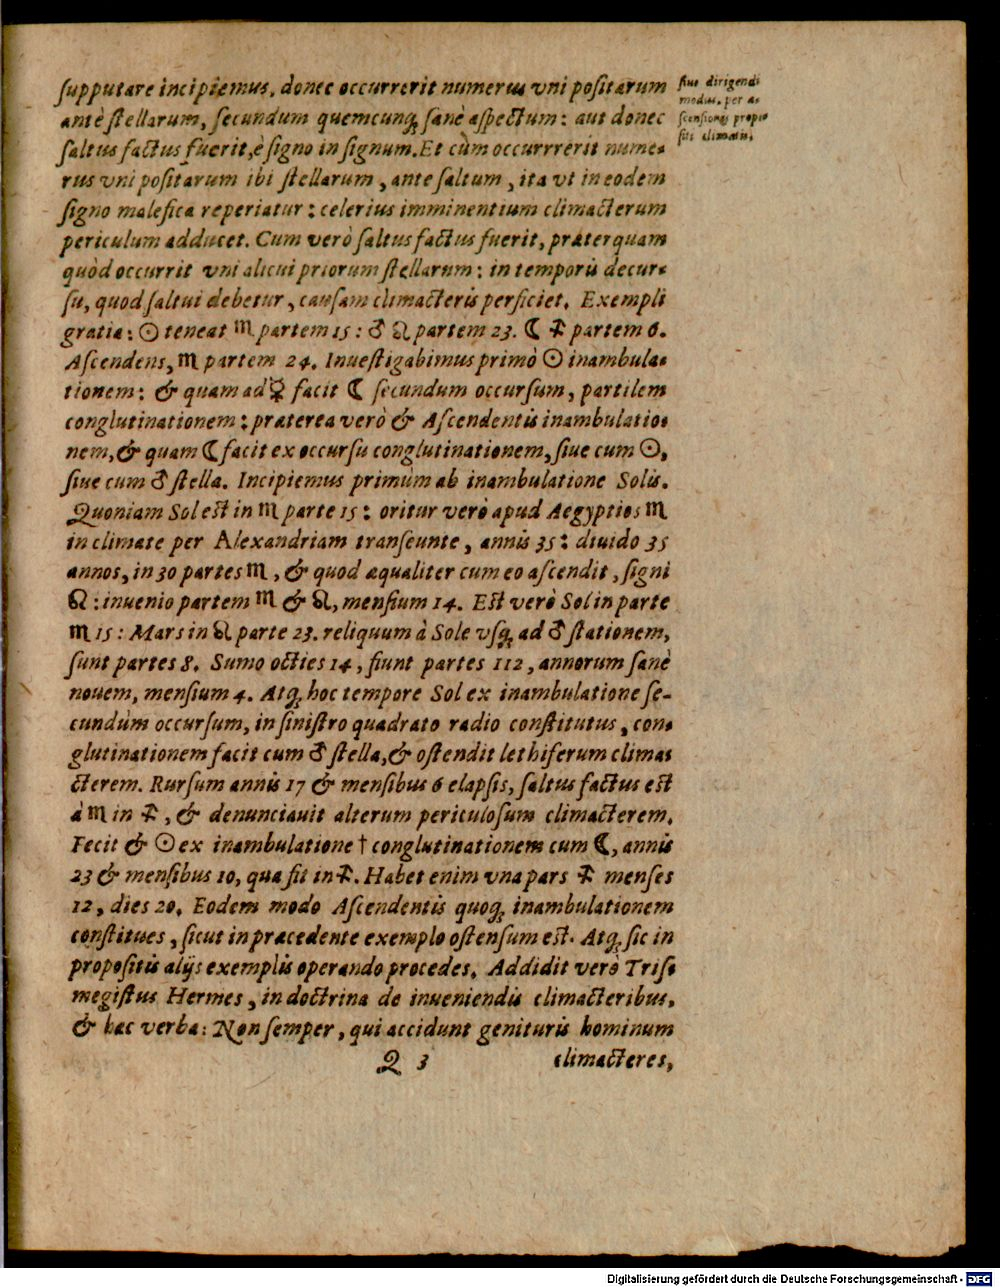 supputare incipiemus, donec occurrerit numerus vni positarum
antè stellarum, secundum quemcunq; sanè aspectum: aut donec
saltus factus fuerit, è signo in signum. Et cùm occurrrerit nume-
rus vni positarum ibi stellarum, ante saltum, ita vt in eodem
signo malefica reperiatur: celerius imminentium climacterum
periculum adducet. Cum verò saltus factus fuerit, præterquam
quòd occurrit vni alicui priorum stellarum: in temporis decur-
su, quod saltui debetur, causam climacteris perficiet. Exempli
gratia: ☉ teneat ♏ partem 15: ♂ ♌ partem 23. ☾ ♐ partem 6.
Ascendens, ♏ partem 24. Inuestigabimus primò ☉ inambula-
tionem: & quam ad ☿ facit ☾ secundum occursum, partilem
conglutinationem: præterea verò & Ascendentis inambulatio-
nem, & quam ☾ facit ex occursu conglutinationem, siue cum ☉,
siue cum ♂ stella. Incipiemus primùm ab inambulatione Solis.
Quoniam Sol est in ♏ parte 15: oritur verò apud Aegyptios ♏
in climate per Alexandriam transeunte, annis 35: diuido 35
annos, in 30 partes ♏, & quod æqualiter cum eo ascendit, signi
♌: inuenio partem ♏ & ♌, mensium 14. Est verò Sol in parte
♏ 15: Mars in ♌ parte 23. reliquum à Sole vsq; ad ♂ stationem,
sunt partes 8. Sumo octies 14, fiunt partes 112, annorum sanè
nouem, mensium 4. Atq; hoc tempore Sol ex inambulatione se-
cundùm occursum, in sinistro quadrato radio constitutus, con-
glutinationem facit cum ♂ stella, & ostendit lethiferum clima-
cterem. Rursum annis 17 & mensibus 6 elapsis, saltus factus est
à ♏ in ♐, & denunciauit alterum periculosum climacterem.
Fecit & ☉ ex inambulatione † conglutinationem cum ☾, annis
23 & mensibus 10, quæ fit in ♐. Habet enim vna pars ♐ menses
12, dies 20. Eodem modo Ascendentis quoq; inambulationem
constitues, sicut in præcedente exemplo ostensum est. Atq; sic in
propositis alijs exemplis operando procedes. Addidit verò Tris-
megistus Hermes, in doctrina de inueniendis climacteribus,
& hæc verba: Non semper, qui accidunt genituris hominum
Q 3 climacteres,
siue dirigendi
modus, per a-
scensiones propo-
siti climatis.
Digitalisierung gefördert durch die Deutsche Forschungsgemeinschaft - DFG